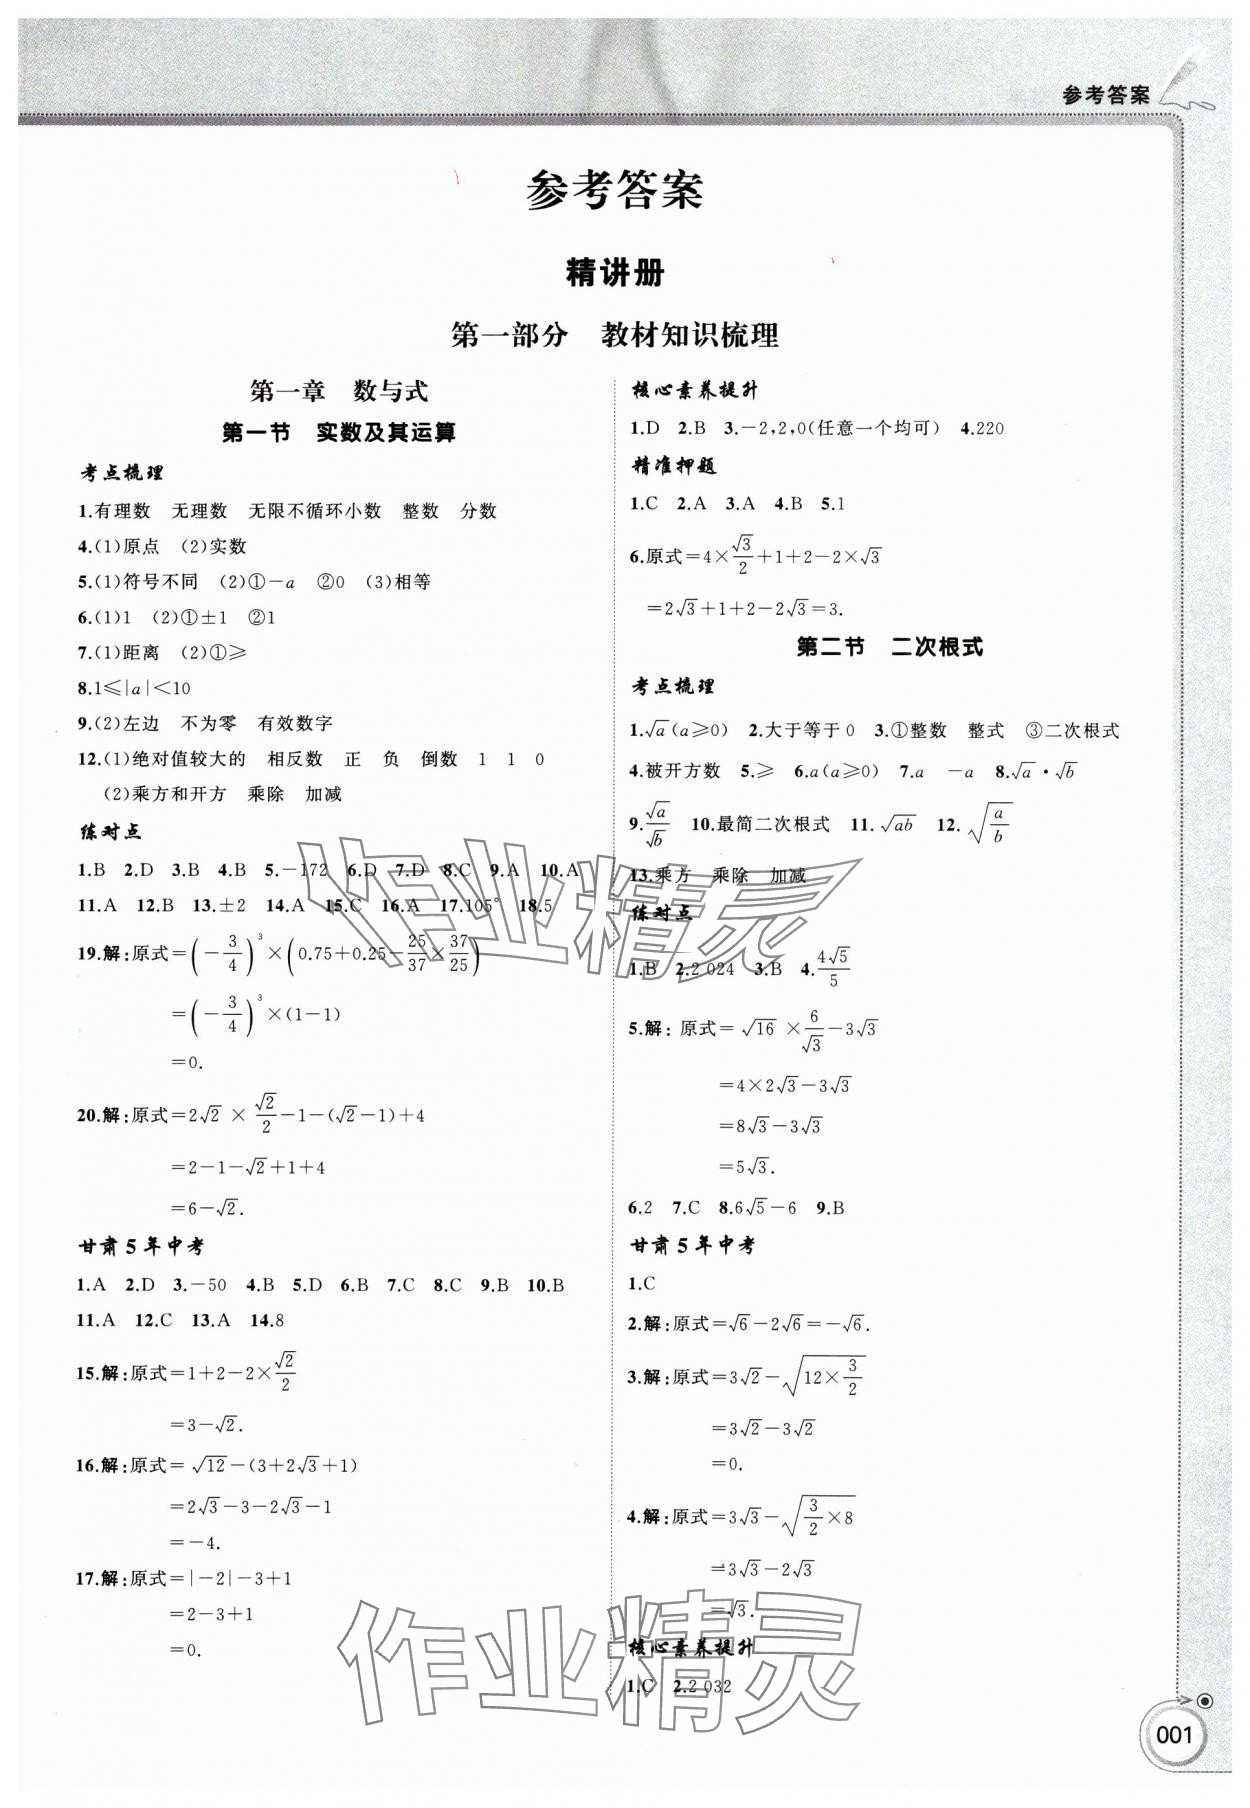 参考答案
参考答案
精讲册
第一部分　教材知识梳理
第一章　数与式
第一节　实数及其运算
考点梳理
1.有理数　无理数　无限不循环小数　整数　分数
4.(1)原点　(2)实数
5.(1)符号不同　(2)①－a　②0　(3)相等
6.(1)1　(2)①±1　②1
7.(1)距离　(2)①≥
8.1≤|a|＜10
9.(2)左边　不为零　有效数字
12.(1)绝对值较大的　相反数　正　负　倒数　1　1　0
(2)乘方和开方　乘除　加减
练对点
1.B　2.D　3.B　4.B　5.－172　6.D　7.D　8.C　9.A　10.A
11.A　12.B　13.±2　14.A　15.C　16.A　17.105°　18.5
19.解:原式＝(－3/4)³×(0.75＋0.25－25/37×37/25)
＝(－3/4)³×(1－1)
＝0.
20.解:原式＝2√2×√2/2－1－(√2－1)＋4
＝2－1－√2＋1＋4
＝6－√2.
甘肃5年中考
1.A　2.D　3.－50　4.B　5.D　6.B　7.C　8.C　9.B　10.B
11.A　12.C　13.A　14.8
15.解:原式＝1＋2－2×√2/2
＝3－√2.
16.解:原式＝√12－(3＋2√3＋1)
＝2√3－3－2√3－1
＝－4.
17.解:原式＝|－2|－3＋1
＝2－3＋1
＝0.
核心素养提升
1.D　2.B　3.－2,2,0(任意一个均可)　4.220
精准押题
1.C　2.A　3.A　4.B　5.1
6.原式＝4×√3/2＋1＋2－2×√3
＝2√3＋1＋2－2√3＝3.
第二节　二次根式
考点梳理
1.√a(a≥0)　2.大于等于0　3.①整数　整式　③二次根式
4.被开方数　5.≥　6.a(a≥0)　7.a　－a　8.√a·√b
9.√a/√b　10.最简二次根式　11.√ab　12.√(a/b)
13.乘方　乘除　加减
练对点
1.B　2.2 024　3.B　4.4√5/5
5.解:原式＝√16×6/√3－3√3
＝4×2√3－3√3
＝8√3－3√3
＝5√3.
6.2　7.C　8.6√5－6　9.B
甘肃5年中考
1.C
2.解:原式＝√6－2√6＝－√6.
3.解:原式＝3√2－√(12×3/2)
＝3√2－3√2
＝0.
4.解:原式＝3√3－√(3/2×8)
＝3√3－2√3
＝√3.
核心素养提升
1.C　2.2 032
001
作业精灵
作业精灵